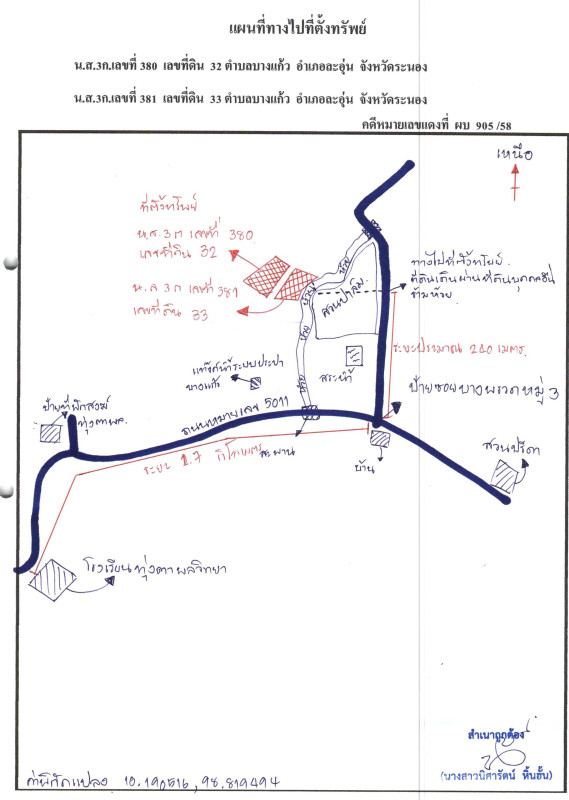 แผนที่ทางไปที่ตั้งทรัพย์
น.ส.3ก.เลขที่ 380 เลขที่ดิน 32 ตำบลบางแก้ว อำเภอละอุ่น จังหวัดระนอง
น.ส.3ก.เลขที่ 381 เลขที่ดิน 33 ตำบลบางแก้ว อำเภอละอุ่น จังหวัดระนอง
คดีหมายเลขแดงที่ ผบ 905 /58
เหนือ
ที่ตั้งทรัพย์
น.ส.3ก เลขที่ 380
เลขที่ดิน 32
น.ส.3ก เลขที่ 381
เลขที่ดิน 33
ห้วย
ห้วย
ห้วย
ห้วย
สวนปาล์ม
ทางไปที่ตั้งทรัพย์
ที่ดินเดินผ่านที่ดินบุคคลอื่น
ข้ามห้วย
ระยะประมาณ 240 เมตร
แท๊งค์น้ำระบบประปา
บางแก้ว
สระน้ำ
ป้ายซอยบางพรวดหมู่ 3
ป้ายที่พักสงฆ์
ทุ่งตาพล
ถนนหมายเลข 5011
ระยะ 1.7 กิโลเมตร
สะพาน
บ้าน
สวนปรีดา
โรงเรียนทุ่งตาพลวิทยา
สำเนาถูกต้อง
(นางสาวนิศารัตน์ หิ้นฮั้น)
ค่าพิกัดแปลง 10.190516, 98.819494